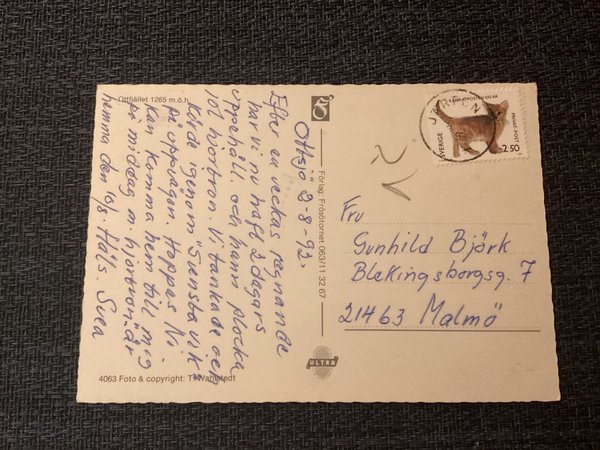 Ottfjället 1265 m.ö.h.
Ottsjö 2-8-92.
Efter en veckas regnande
har vi nu haft 2 dagars
uppehåll och hann plocka
10l hjortron. Vi tankade och
körde igenom "Svensta vik"
på uppvägen. Hoppas Ni
kan komma hem till mig
på middag m. hjortron, är
hemma den 10/8 Hälls Svea
4063 Foto & copyright: T. Wahlstedt
Förlag: Frösötornet 063/11 32 67
ULTRA
JÄRPEN
PRIVAT-POST
SVERIGE
2.50
Fru
Gunhild Björk
Blekingsborgsg. 7
21463 Malmö